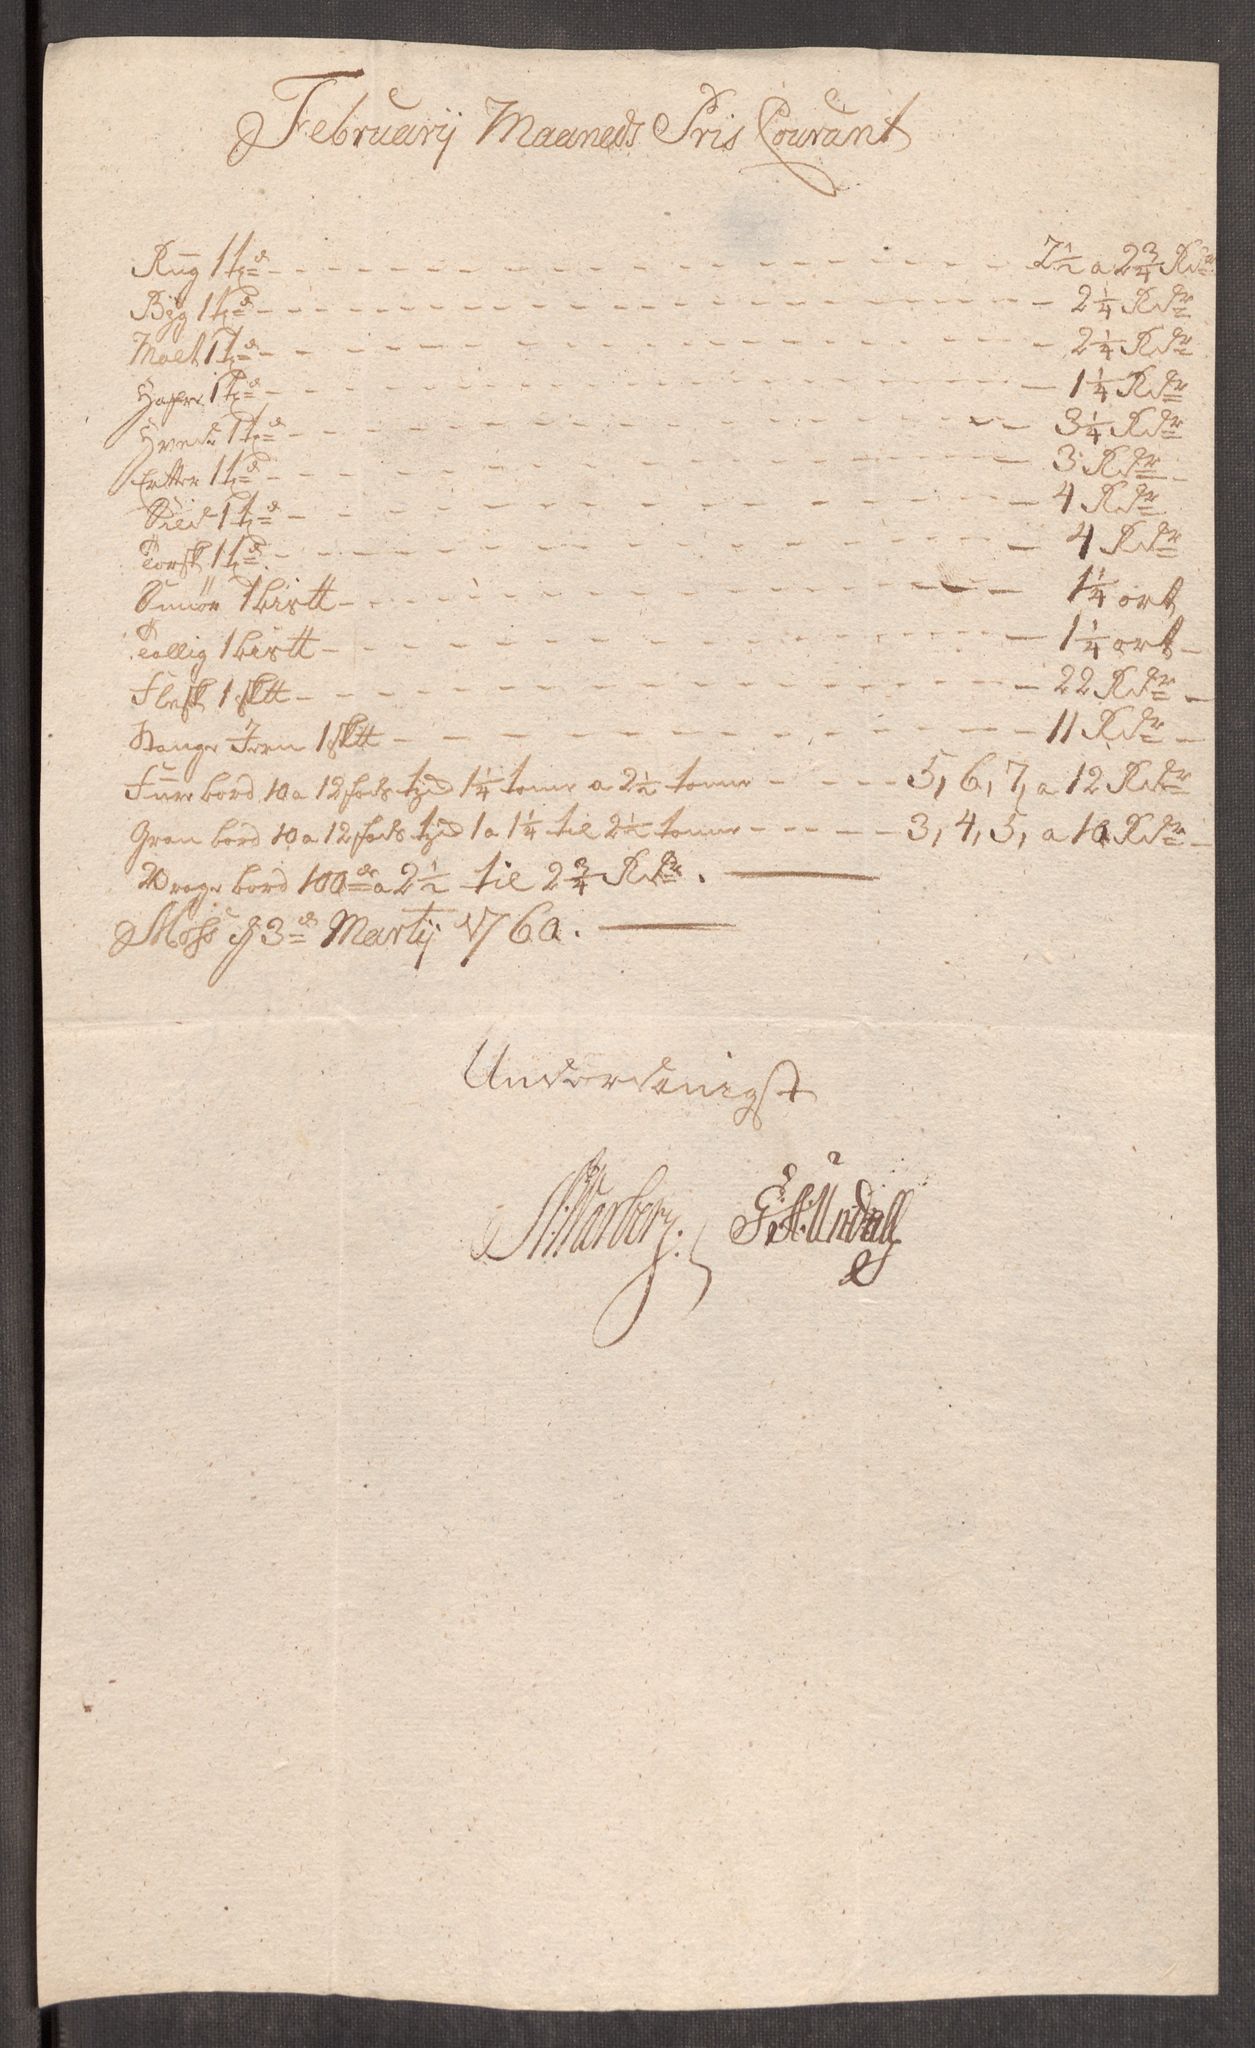 Februarij Maaneds Pris Courant
Rug 1 tde - 2½ a 2¾ Rdr
Byg 1 tde - 2¼ Rdr
Malt 1 tde - 2¼ Rdr
Hafre 1 tde - 1¼ Rdr
Hvede 1 tde - 3¼ Rdr
Ertter 1 tde - 3 Rdr
Sild 1 tde - 4 Rdr
Torsk 1 tde - 4 Rdr
Smör 1 bis℔ - 1¼ ort
Tallig 1 bis℔ - 1¼ ort
Flesk 1 sk℔ - 22 Rdr
Stange Jern 1 sk℔ - 11 Rdr
Furre bord 10 a 12 fods 1¼ tomme a 2½ tomme - 5, 6, 7, a 12 Rdr
Gran bord 10 a 12 fods 1 a 1¼ til 2½ tomme - 3, 4, 5, a 10 Rdr
Vrage bord 100de a 2½ til 2¾ Rdr.
Moss d 3de Martij 1760.
Underdanigst
N: Warberg. G. A. Undall